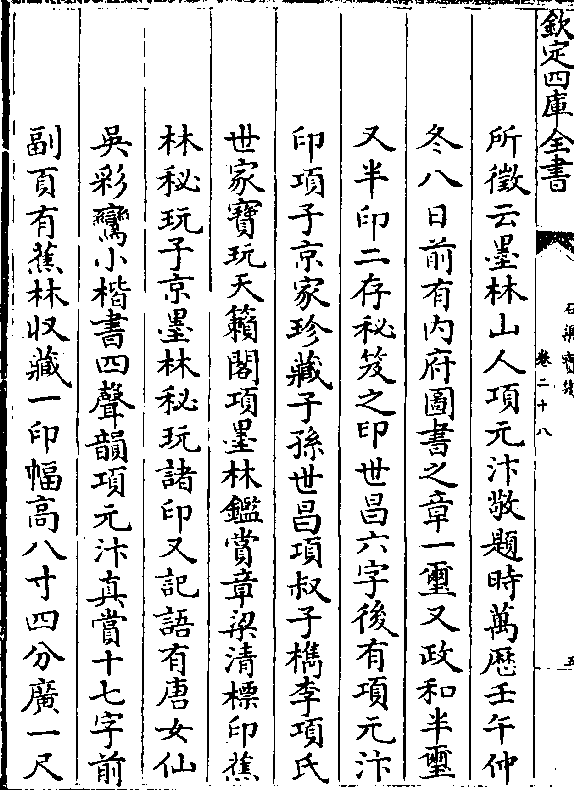 欽定四庫全書
石渠寳笈
卷二十八
五
所徵云墨林山人項元汴敬題時萬歴壬午仲
冬八日前有内府圖書之章一璽又政和半璽
又半印二存秘笈之印世昌六字後有項元汴
印項子京家珍藏子孫世昌項叔子檇李項氏
世家寶玩天籟閣項墨林鑑賞章梁清標印蕉
林秘玩子京墨林秘玩諸印又記語有唐女仙
吳彩鸞小楷書四聲韻項元汴真賞十七字前
副頁有蕉林收藏一印幅高八寸四分廣一尺